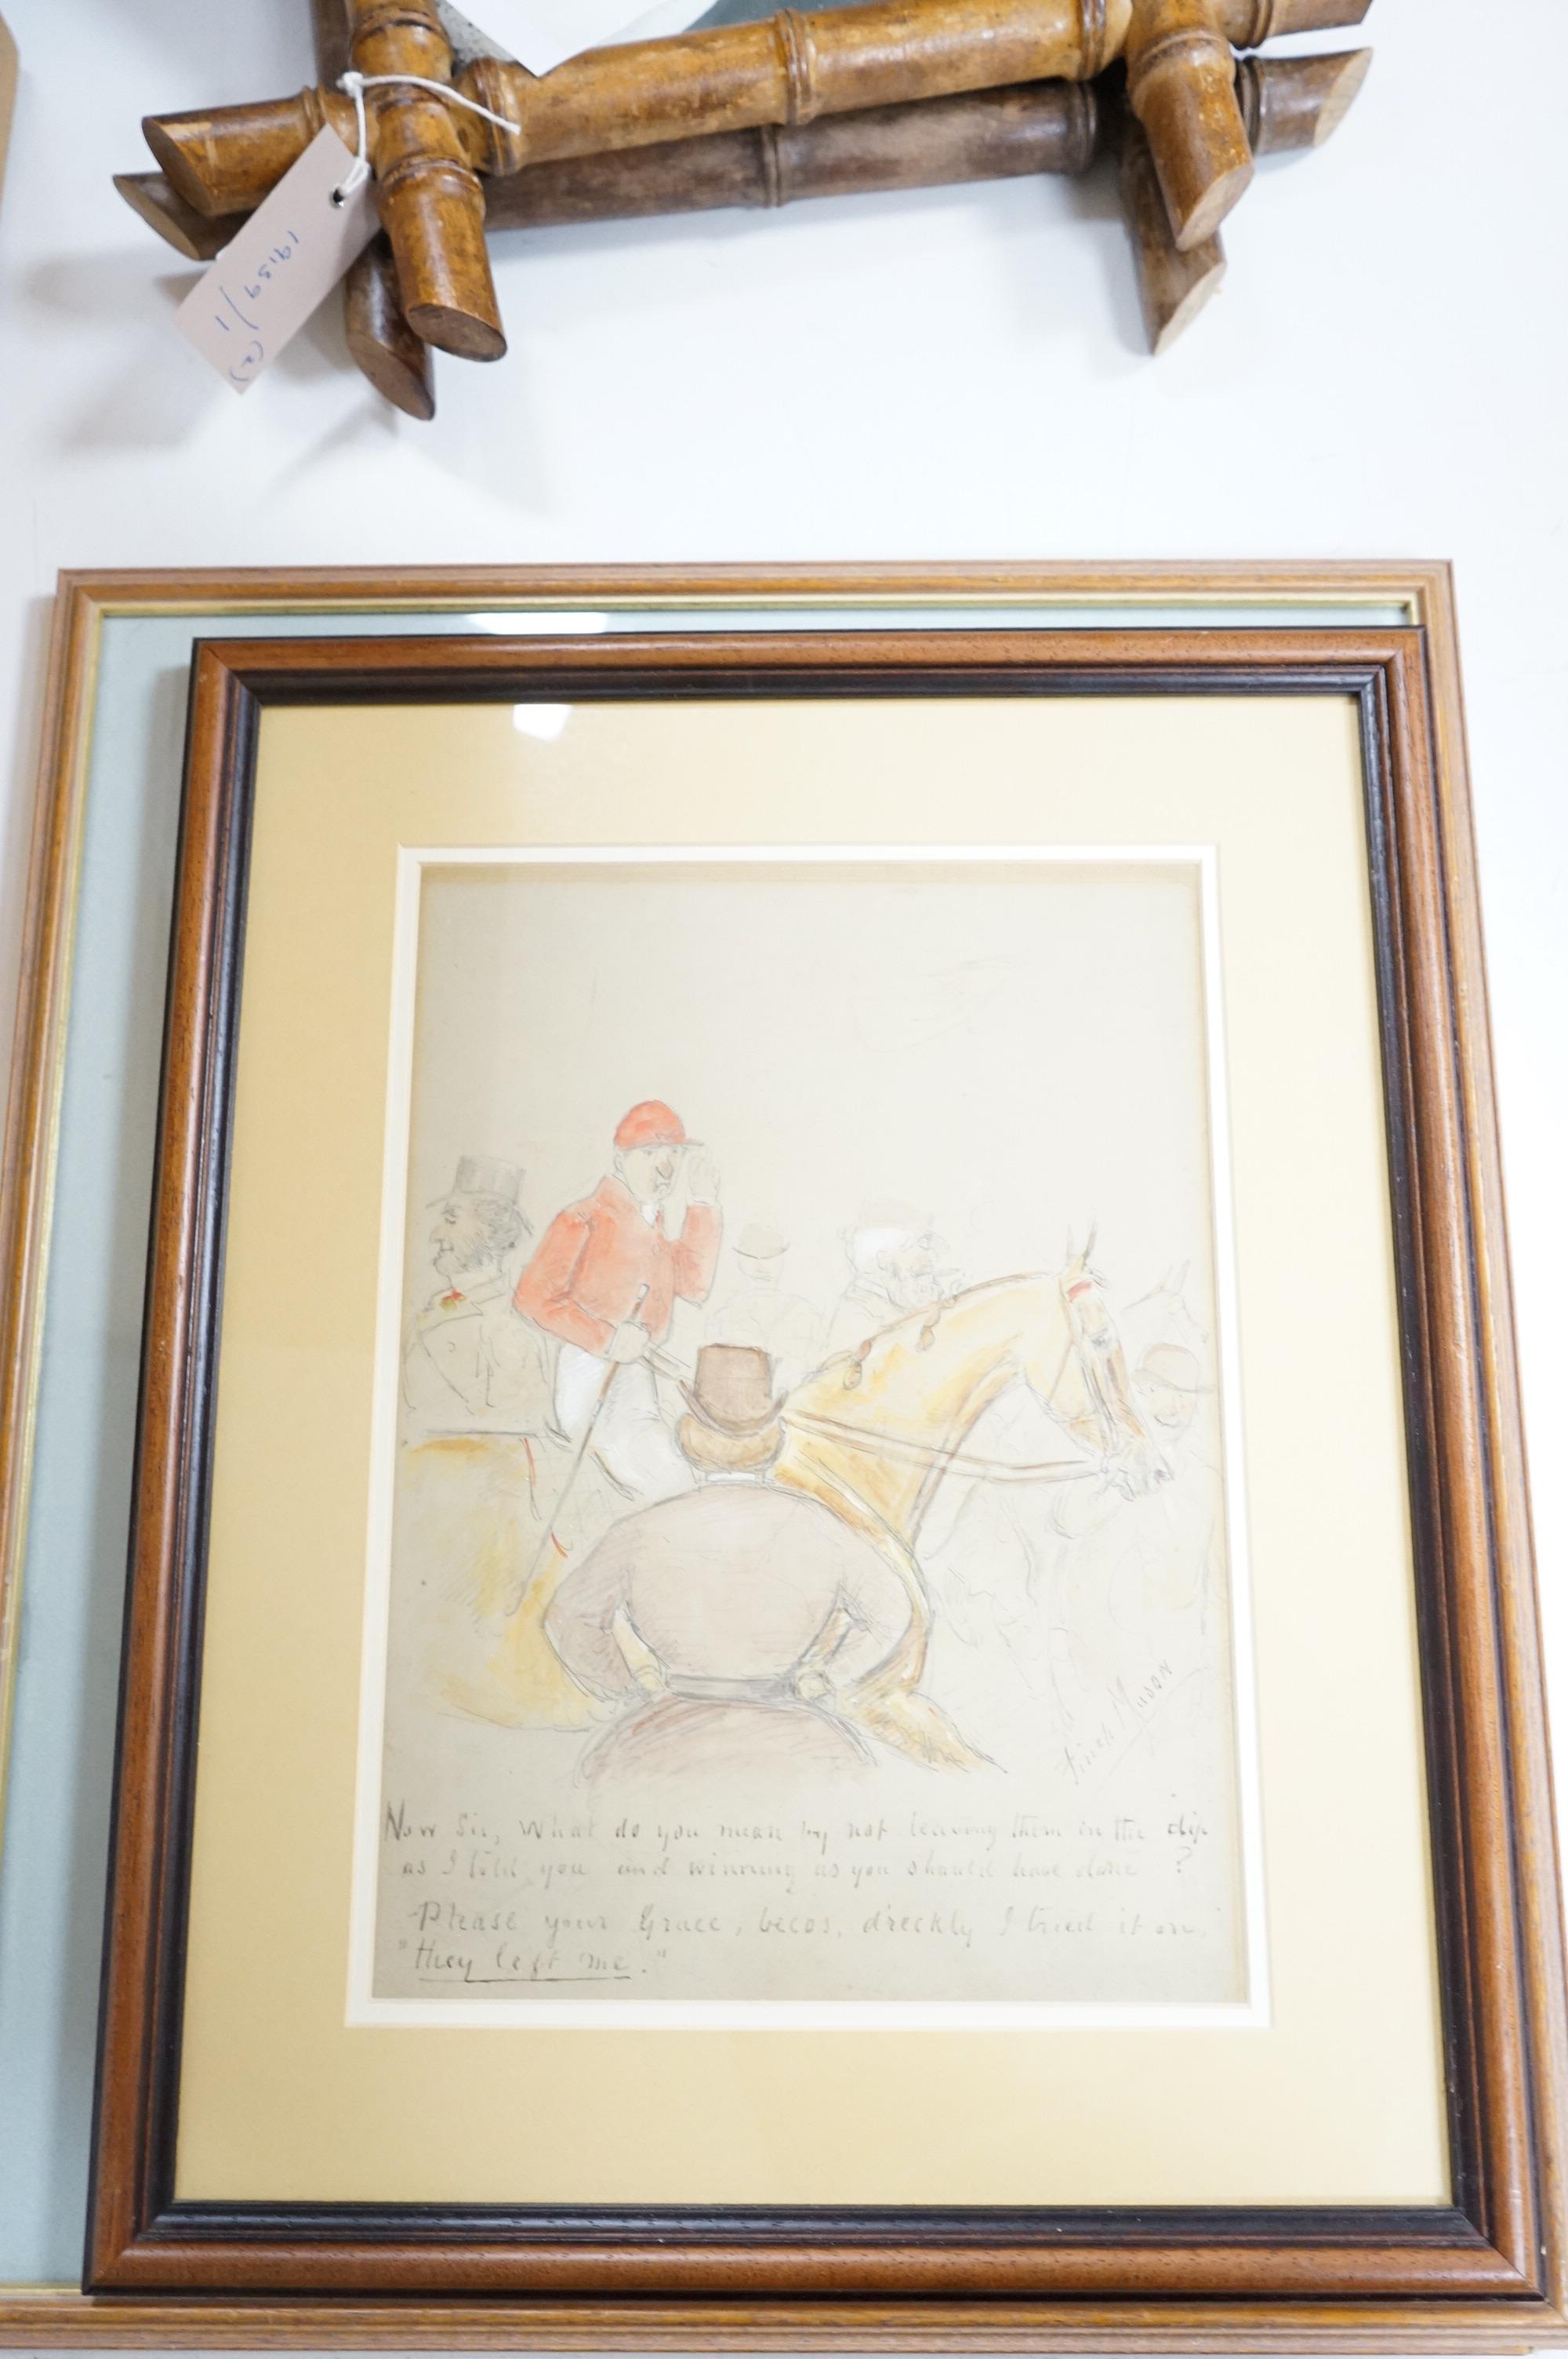 19159/1
(2)
Finch Mason
Now Sir, What do you mean by not leaving them in the dip
as I told you and winning as you should have done ?
Please your Grace, becos, d'reckly I tried it on,
"they left me."